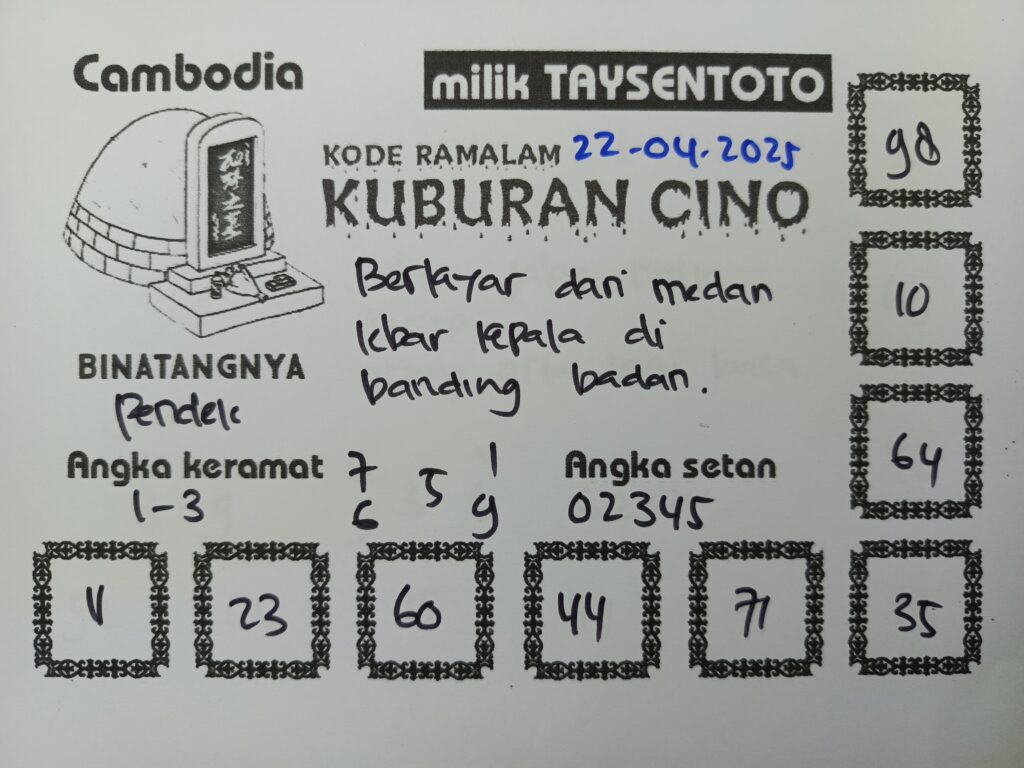 Cambodia
milik TAYSENTOTO
KODE RAMALAM 22-04-2025
KUBURAN CINO
Berlayar dari medan
lebar kepala di
banding badan.
BINATANGNYA
Pendek
Angka keramat
1-3
7 5 1
6 9
Angka setan
02345
98
10
64
11
23
60
44
71
35